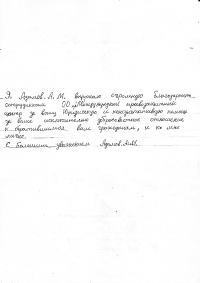 Я, Азимов А. М. выражаю огромную благодарность
сотрудникам ОО "Международный правозащитный
центр за вашу Юридическую и неоценимую помощь
за ваше исключительно добросовестное отношение
к обратившимся к вам гражданам, и ко мне
лично.
С большим уважением А.М.